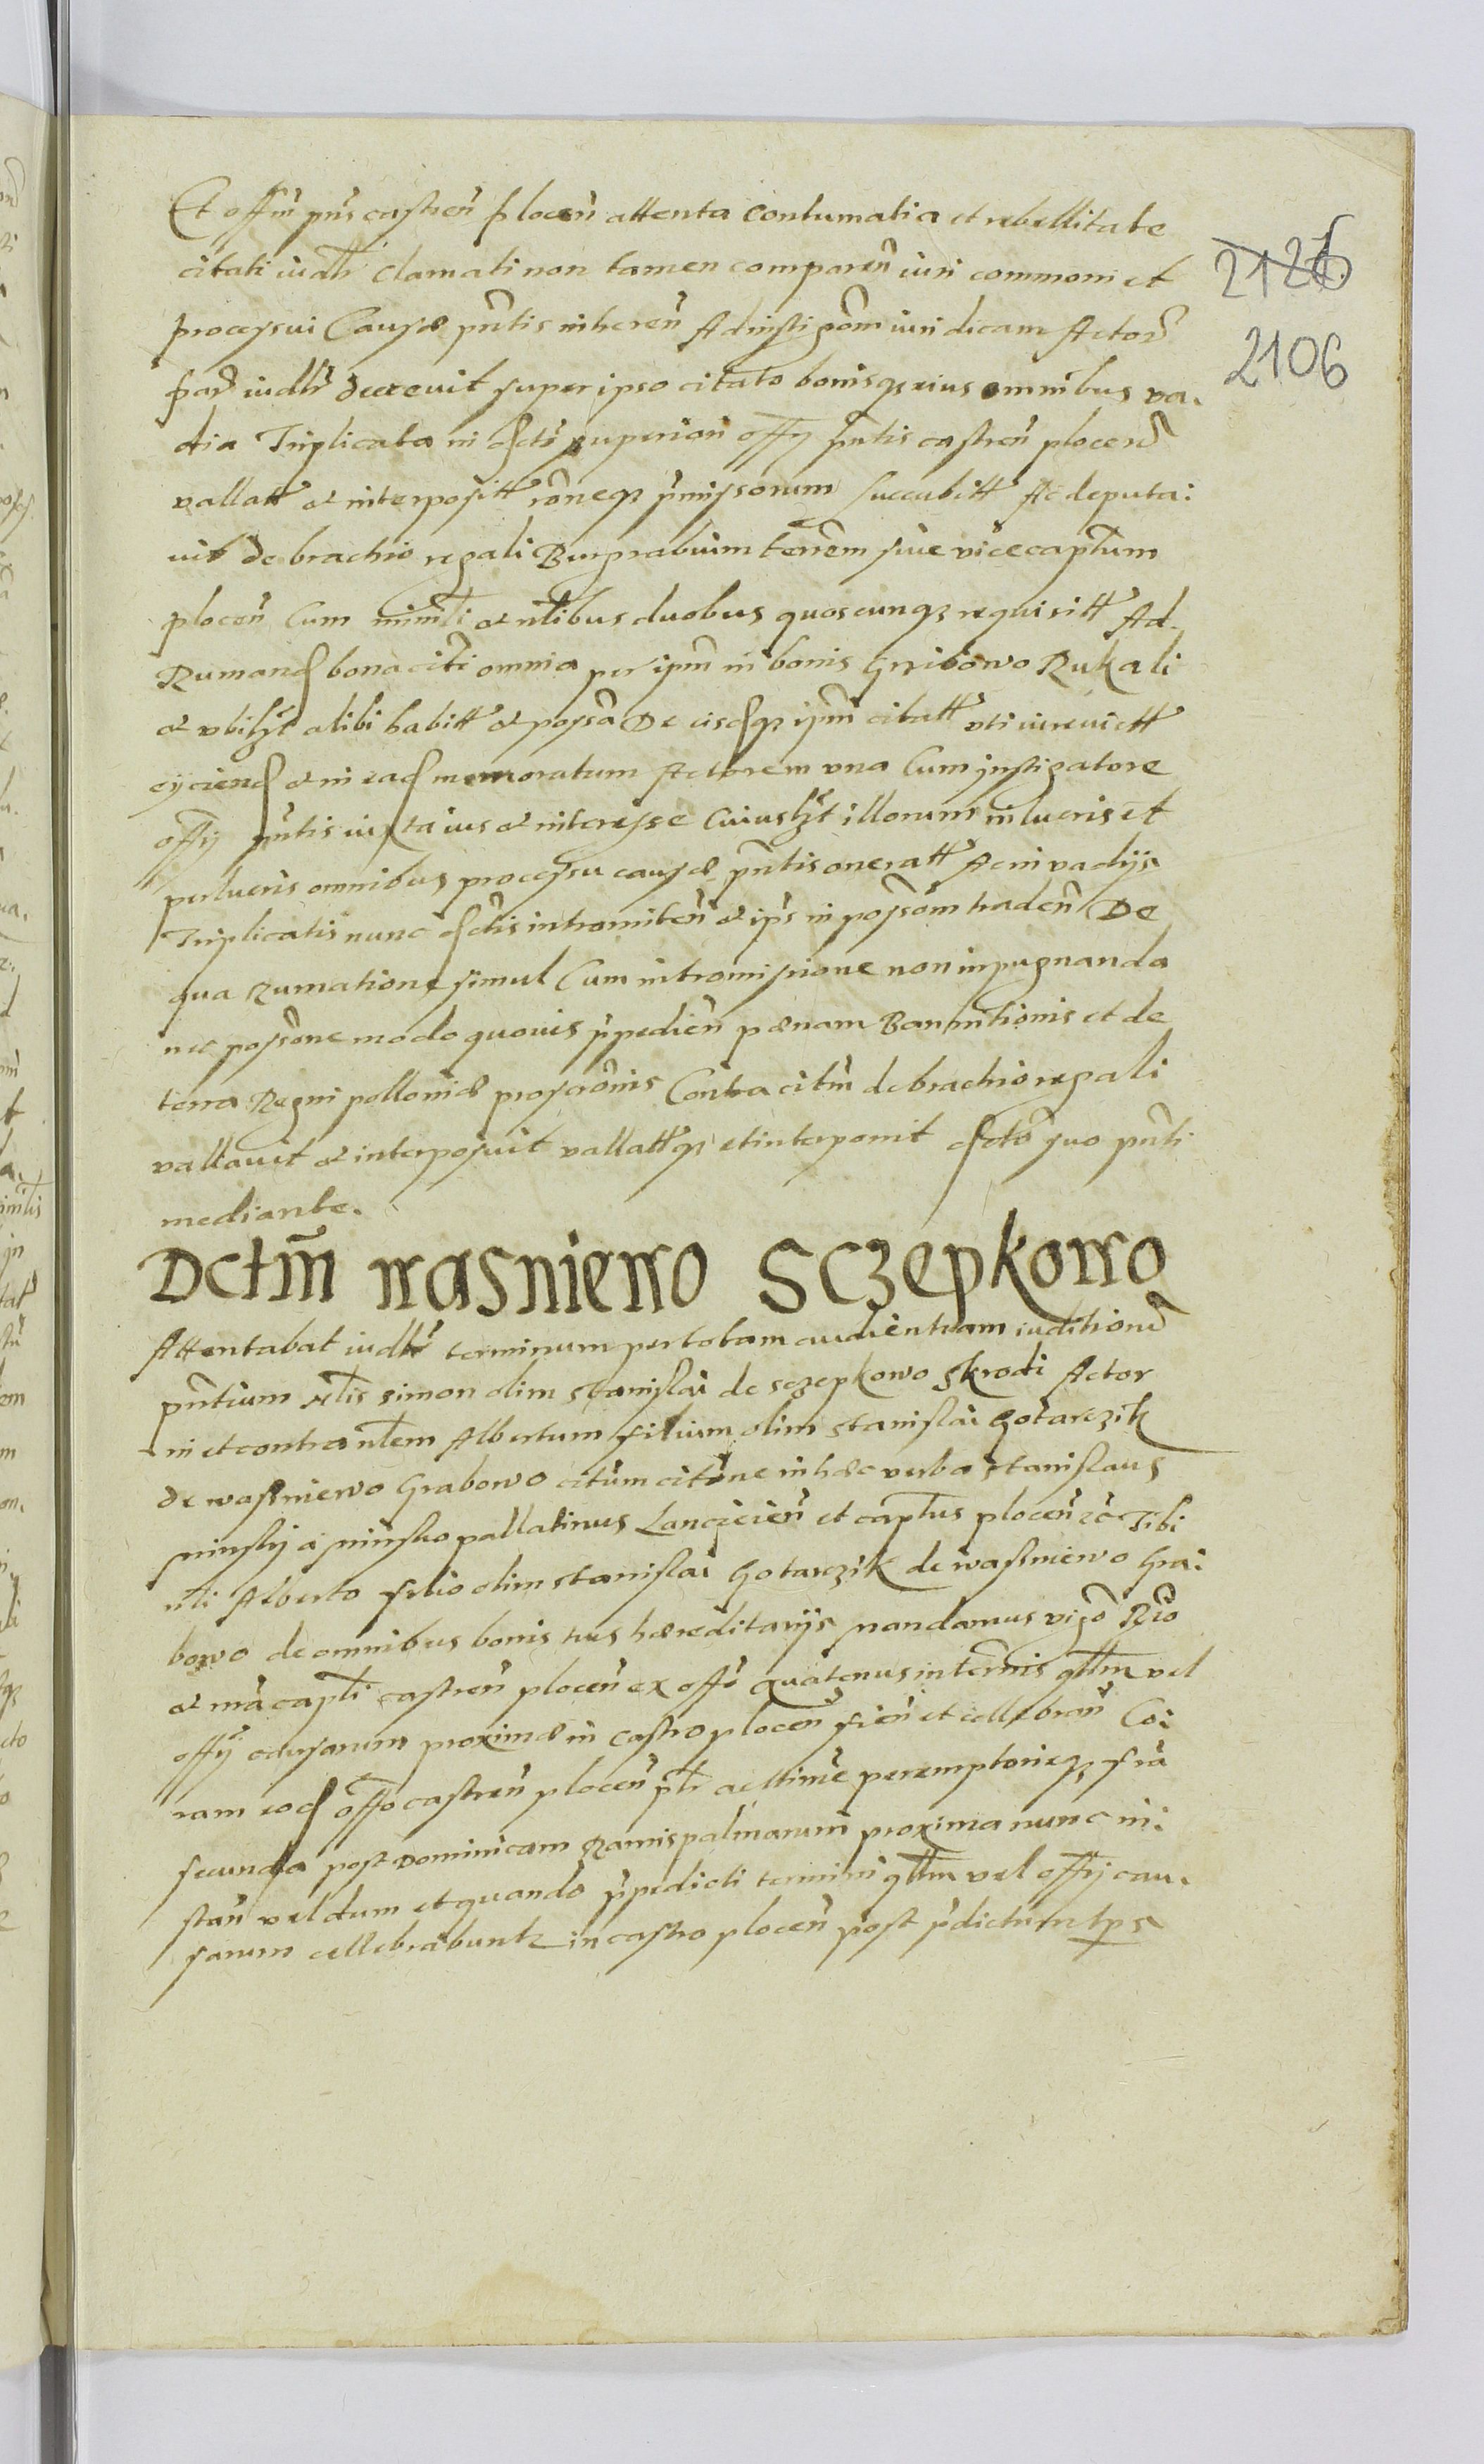 Et offm pns castren plocen attenta contumatia et rebellitate
citati iudlr clamati non tamen comparen iuri commoni et
processui Causæ pntis inheren Ad instigōm iuridicam Actor
par iudlr decrevit super ipso citato bonisq3 eius omnibus va.
dia Triplicata in dcti superiori offy pntis castren plocen
vallatt et interpositt rōneq3 pmissorum succubitt Ac deputa:
vit de brachio regali Burgrabium terrem siue vicecaptum
plocen Cum minrli et nlibus duobus quoscunq3 requisitt Ad.
Rumand bona citi omnia per ipm in bonis Gribowo Rukali
et vbilzt alibi habitt et possa De eisdq3 ipm citatt vti iurevictt
eyciend et in ead memoratum Actorem vna Cum instigatore
offy pntis iuxta ius et interesse Cuiuslzt illorum in lucris et
perlucris omnibus processu causæ pntis oneratt Ac in vadijs
Triplicatis nunc dctis intromiten et ips in possōm traden De
qua Rumatione simul Cum intromissione non inpugnanda
nec possōne modo quovis ppedien pœnam Bannitionis et de
terra Regni polloniæ proscrōnis Contra citm de brachio regali
vallavit et interposuit vallattq3 et interponit dcto suo pnti
mediante.
Dctm wasniewo Sczepkowo
Attentabat iudlr terminum per totam audientiam iuditior
pntium nlis simon olim stanislai de sczepkowo skrodi Actor
in et contra nlem Albertum filium olim stanislai Gotarczik
de wasniewo Grabowo citum citōne in hæc verba stanislaus
minsky a minsko pallatinus Lanczicien et captus plocen rc Tibi
nli Alberto filio olim stanislai Gotarczik de wasniewo Gra:
bowo de omnibus bonis tuis hæreditarijs mandamus vigō Rio
et nra capli castren plocen ex offo quatenus in termis qllm vel
offy causarum proximæ in castro plocen fien et cellebran Co:
ram eod offo castren plocen plr ac ltime peremptorieq3 fria
secunda post dominicam Ramispalmarum proxima nunc in:
stan vel dum et quando ppedicti termini qllm vel offy cau.
sarum cellebrabuntr in castro plocen post pdictum tps
2126
2106